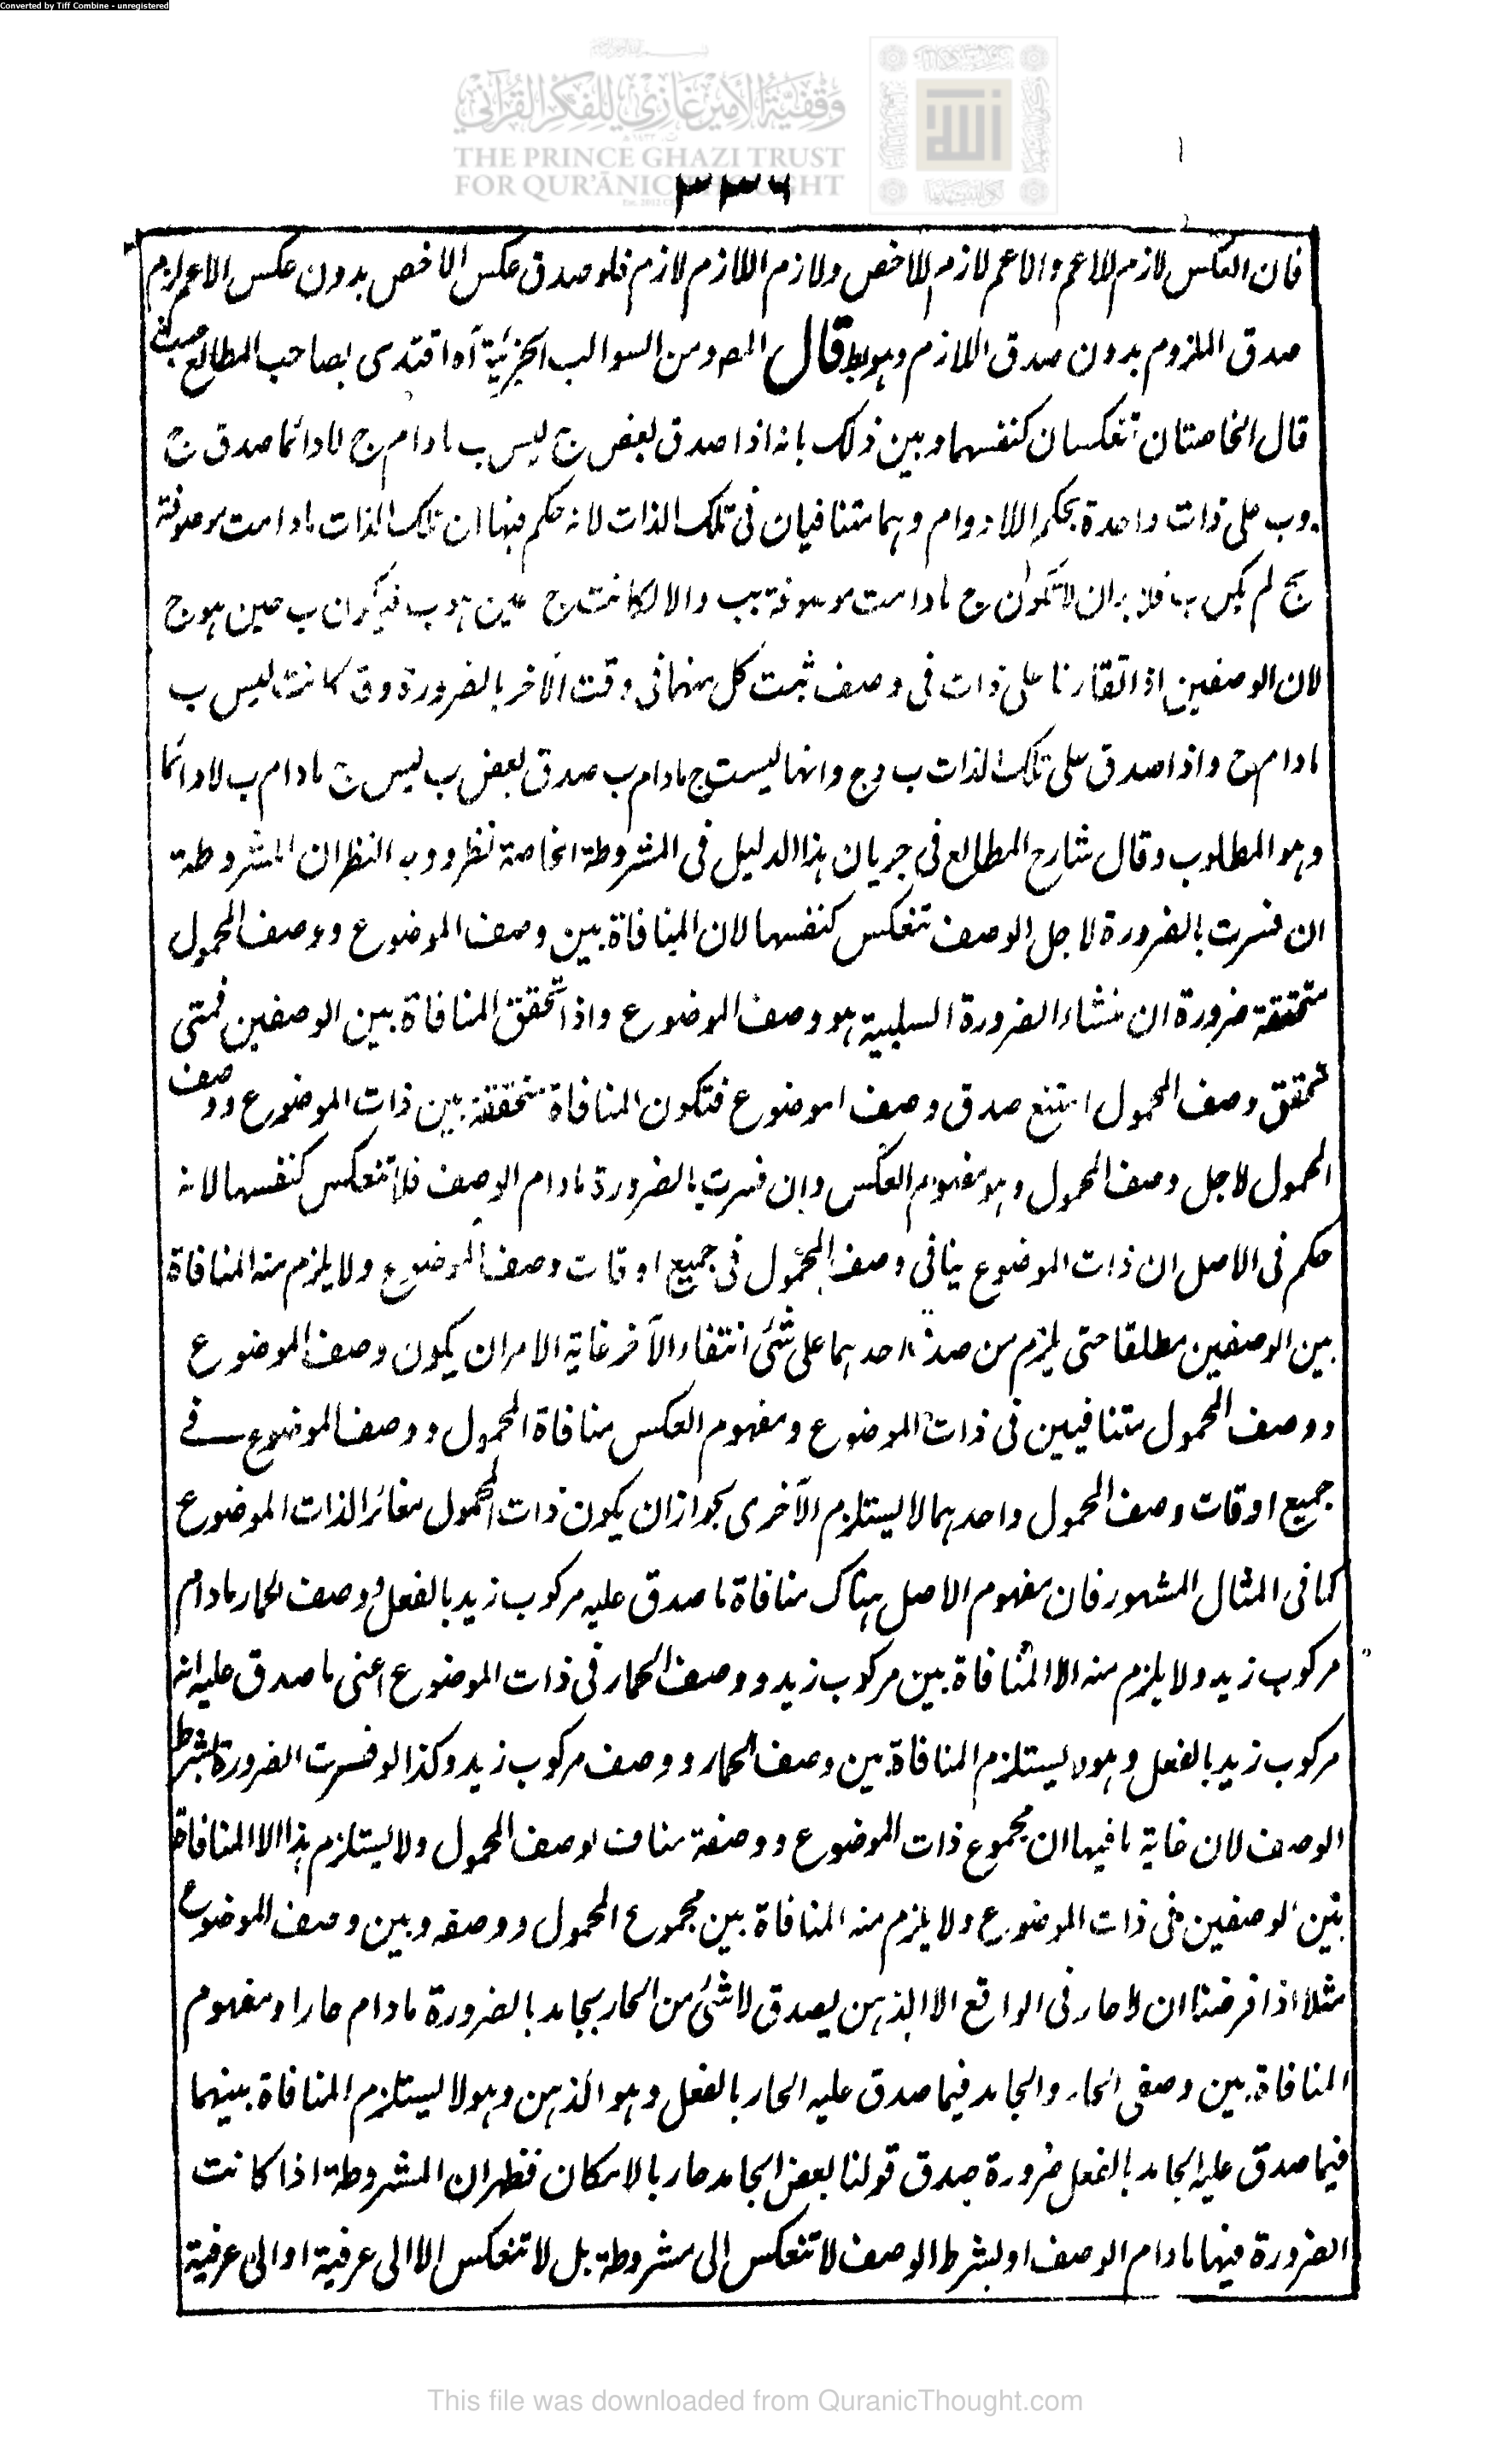 Converted by Tiff Combine - unregistered
وقفية الأمير غازي للفكر القرآني
THE PRINCE GHAZI TRUST
FOR QUR'ĀNIC THOUGHT
٣٣٦
فان العكس لازم للاعم والاعم لازم للاخص ولازم اللازم لازم فلو صدق عكس الاخص بدون عكس الاعم لزم
صدق الملزوم بدون صدق اللازم وهو بط قال المصو من السوالب الجزئية آه اقتدى بصاحب المطالع حيث
قال الخاصتان تنعكسان كنفسهما وبين ذلك بانه اذا صدق بعض ج ليس ب مادام ج لا دائما صدق ج
وب على ذات واحدة بحكم اللادوام وهما متنافيان فى تلك الذات لانه حكم فيها ان تلك الذات مادامت موصوفة
بج لم يكن ب فلا بد ان لا تكون ج مادامت موصوفة بب والا لكانت ج حين هو ب فيكون ب حين هو ج
لان الوصفين اذا تقارنا على ذات فى وصف ثبت كل منهما فى وقت الآخر بالضرورة وق كانت ليس ب
مادام ج واذا صدق على تلك الذات ب وج وانها ليست ج مادام ب صدق بعض ب ليس ج مادام ب لا دائما
وهو المطلوب وقال شارح المطالع فى جريان هذا الدليل فى المشروطة الخاصة نظر ووجه النظر ان المشروطة
ان فسرت بالضرورة لاجل الوصف تنعكس كنفسها لان المنافاة بين وصف الموضوع ووصف المحمول
متحققة ضرورة ان منشاء الضرورة السلبية هو وصف الموضوع واذا تحقق المنافاة بين الوصفين فمتى
تحقق وصف المحمول امتنع صدق وصف الموضوع فتكون المنافاة متحققة بين ذات الموضوع ووصف
المحمول لاجل وصف المحمول وهو مفهوم العكس وان فسرت بالضرورة مادام الوصف فلا تنعكس كنفسها لانه
حكم فى الاصل ان ذات الموضوع ينافى وصف المحمول فى جميع اوقات وصف الموضوع ولا يلزم منه المنافاة
بين الوصفين مطلقا حتى يلزم من صدق احدهما على شئ انتفاء الآخر غاية الامر ان يكون وصف الموضوع
ووصف المحمول متنافيين فى ذات الموضوع ومفهوم العكس منافاة المحمول ووصف الموضوع فى
جميع اوقات وصف المحمول واحدهما لا يستلزم الآخرى بجواز ان يكون ذات المحمول مغائر الذات الموضوع
كما فى المثال المشهور فان مفهوم الاصل هناك منافاة ما صدق عليه مركوب زيد بالفعل ووصف الحمار مادام
مركوب زيد ولا يلزم منه الا المنافاة بين مركوب زيد ووصف الحمار فى ذات الموضوع اعنى ما صدق عليه انه
مركوب زيد بالفعل وهو لا يستلزم المنافاة بين وصف الحمار ووصف مركوب زيد وكذا لو فسرت الضرورة بشرط
الوصف لان غاية ما فيها ان مجموع ذات الموضوع ووصفة مناف لوصف المحمول ولا يستلزم هذا الا المنافاة
بين الوصفين فى ذات الموضوع ولا يلزم منه المنافاة بين مجموع المحمول ووصفه وبين وصف الموضوع
مثلا اذا فرضنا ان لا حار فى الواقع الا الدهن يصدق لا شئ من الحار بجامد بالضرورة مادام حارا ومفهوم
المنافاة بين وصفى الحار والجامد فيما صدق عليه الحار بالفعل وهو الدهن وهو لا يستلزم المنافاة بينهما
فيما صدق عليه الجامد بالفعل ضرورة صدق قولنا بعض الجامد حار بالامكان فظهر ان المشروطة اذا كانت
الضرورة فيها مادام الوصف او بشرط الوصف لا تنعكس الى مشروطة بل لا تنعكس الا الى عرفية او الى عرفية
This file was downloaded from QuranicThought.com